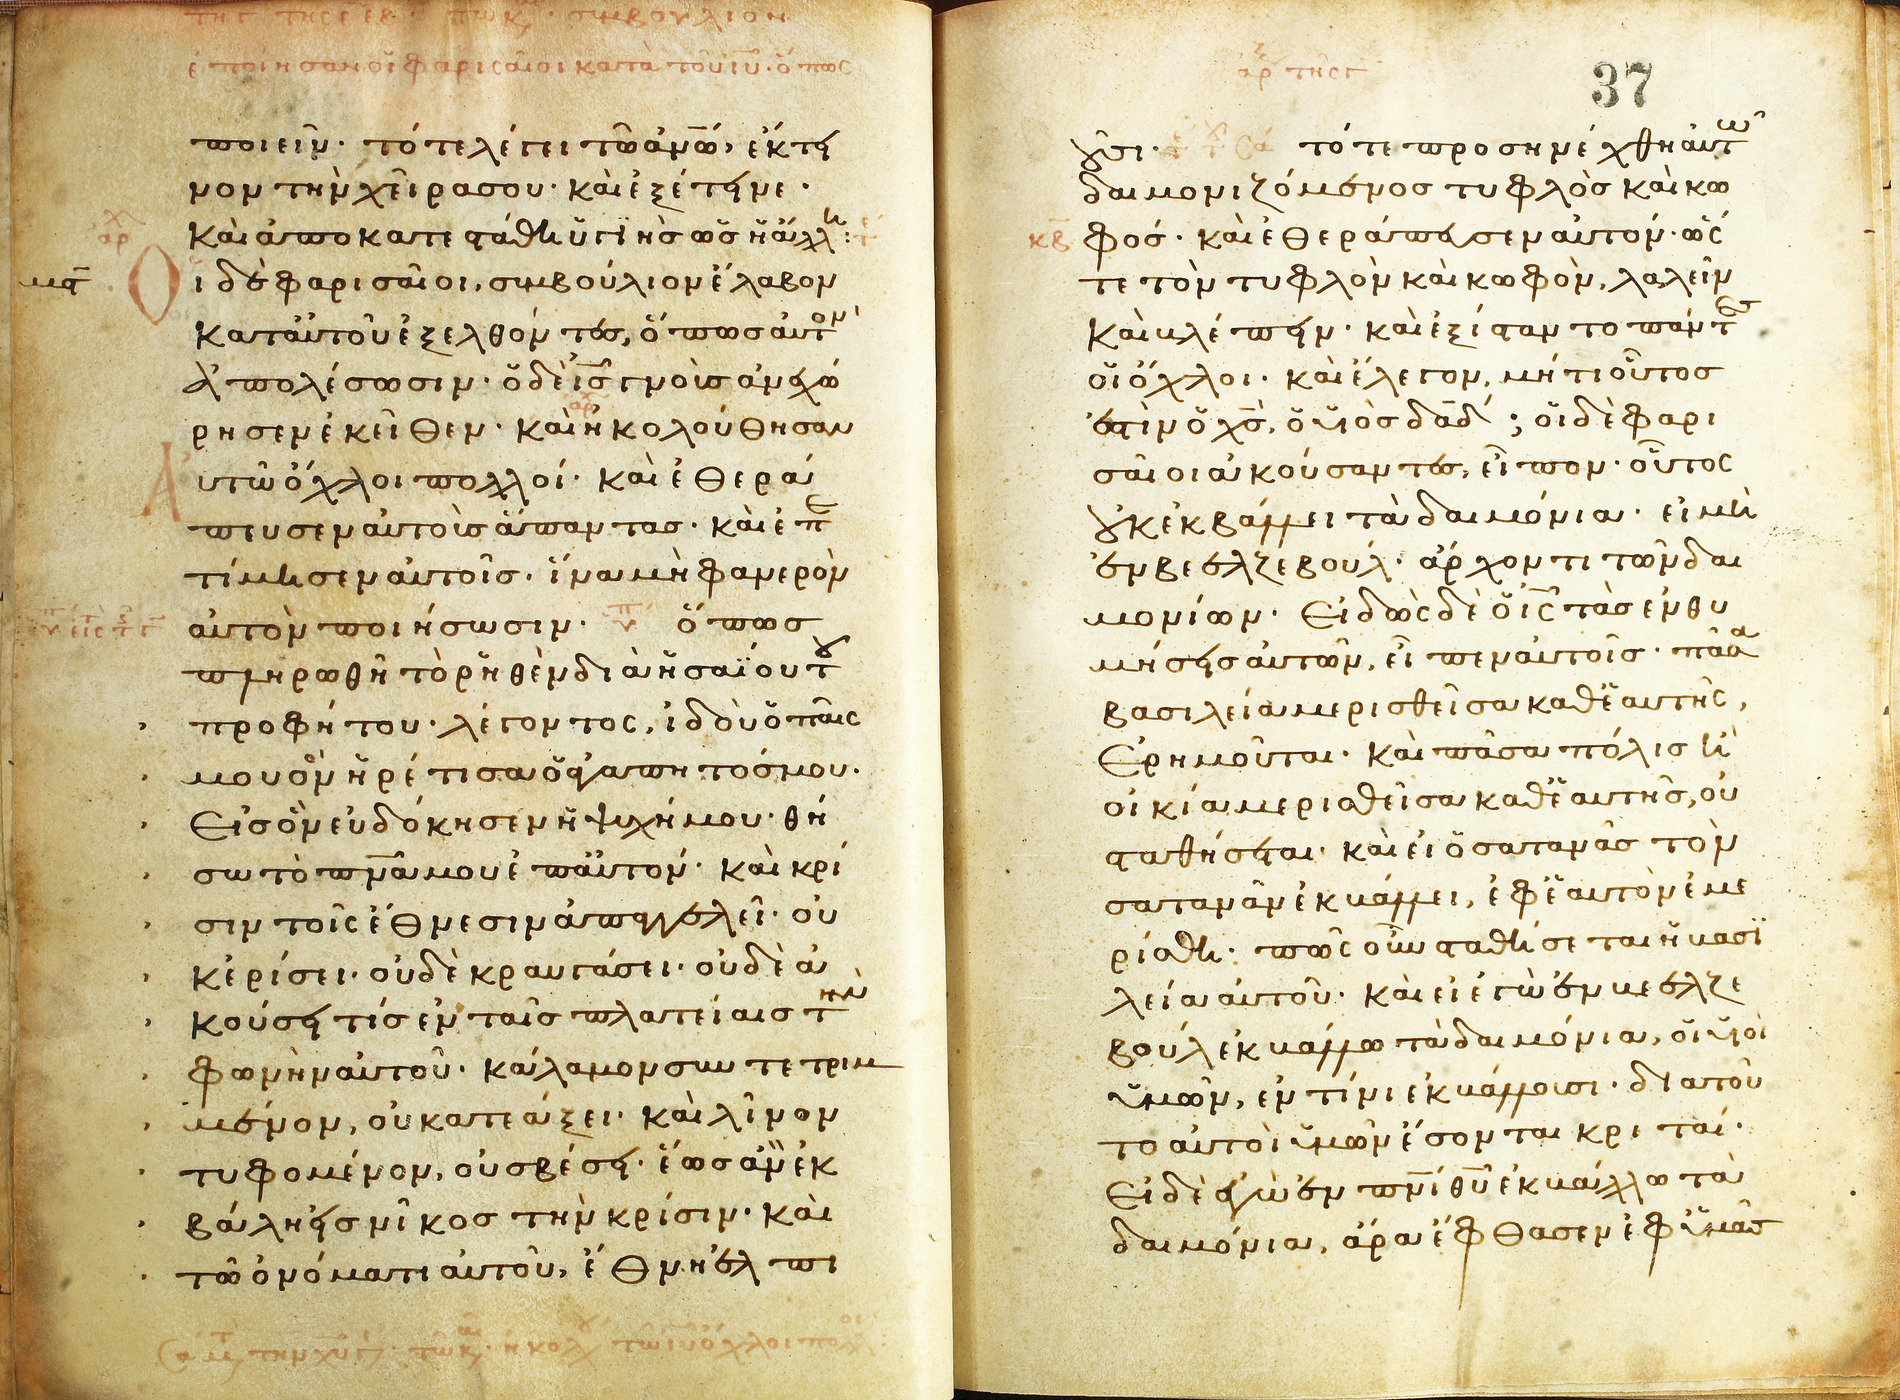 ἐποίησαν οἱ φαρισαῖοι κατὰ τοῦ ιυ· ὅπως
ποιεῖν· τότε λέγει τῶ ἀνω, ἔκτει
νον τὴν χεῖρα σου· καὶ ἐξέτεινε·
καὶ ἀποκατεστάθη ὑγιὴς ὡς ἡ ἄλλη:
Οἱ δὲ φαρισαῖοι, συμβούλιον ἔλαβον
κατ' αὐτοῦ ἐξελθόντες, ὅπως αὐτὸν
ἀπολέσωσιν· ὁ δὲ ις γνοὺς ἀνεχώ
ρησεν ἐκεῖθεν· καὶ ἠκολούθησαν
αὐτῶ ὄχλοι πολλοί· καὶ ἐθερά
πευσεν αὐτοὺς ἅπαντας· καὶ ἐπε
τίμησεν αὐτοῖς· ἵνα μὴ φανερὸν
αὐτὸν ποιήσωσιν· ὅπως
πληρωθῆ τὸ ῥηθὲν διὰ ἠσαΐου τοῦ
προφήτου· λέγοντος, ἰδοὺ ὁ παῖς
μου ὃν ἡρέτισα ὁ ἀγαπητός μου·
Εἰς ὃν εὐδόκησεν ἡ ψυχή μου· θή
σω τὸ πνα μου ἐπ' αὐτόν· καὶ κρί
σιν τοῖς ἔθνεσιν ἀπαγγελεῖ· οὐ
κ ἐρίσει· οὐδὲ κραυγάσει· οὐδὲ ἀ
κούσει τίς ἐν ταῖς πλατείαις τὴν
φωνὴν αὐτοῦ· κάλαμον συντετριμ
μένον, οὐ κατεάξει· καὶ λῖνον
τυφόμενον, οὐ σβέσει· ἕως ἂν ἐκ
βάλη εἰς νῖκος τὴν κρίσιν· καὶ
τῶ ὀνόματι αὐτοῦ, ἔθνη ἐλπι
37
οῦσι· τότε προσηνέχθη αὐτῶ
δαιμονιζόμενος τυφλὸς καὶ κω
φός· καὶ ἐθεράπευσεν αὐτόν· ὥς
τε τὸν τυφλὸν καὶ κωφὸν, λαλεῖν
καὶ βλέπειν· καὶ ἐξίσταντο πάντες
οἱ ὄχλοι· καὶ ἔλεγον, μήτι οὗτος
ἐστὶν ὁ χς, ὁ υἱὸς δαδ; οἱ δὲ φαρι
σαῖοι ἀκούσαντες, εἶπον· οὗτος
οὐκ ἐκβάλλει τὰ δαιμόνια· εἰ μὴ
ἐν βεελζεβοὺλ· ἄρχοντι τῶν δαι
μονίων· Εἰδὼς δὲ ὁ ις τὰς ἐνθυ
μήσεις αὐτῶν, εἶπεν αὐτοῖς· πᾶσα
βασιλεία μερισθεῖσα καθ' ἑαυτῆς,
Ἐρημοῦται· καὶ πᾶσα πόλις ἢ
οἰκία μερισθεῖσα καθ' ἑαυτῆς, οὐ
σταθήσεται· καὶ εἰ ὁ σατανᾶς τὸν
σατανᾶν ἐκβάλλει, ἐφ' ἑαυτὸν ἐμε
ρίσθη· πῶς οὖν σταθήσεται ἡ βασι
λεία αὐτοῦ· καὶ εἰ ἐγὼ ἐν βεελζε
βοὺλ ἐκβάλλω τὰ δαιμόνια, οἱ υἱοὶ
ὑμῶν, ἐν τίνι ἐκβάλλουσι· διατοῦ
το αὐτοὶ ὑμῶν ἔσονται κριταί·
Εἰ δὲ ἐγὼ ἐν πνι θυ ἐκβάλλω τὰ
δαιμόνια, ἄρα ἔφθασεν ἐφ' ὑμᾶς